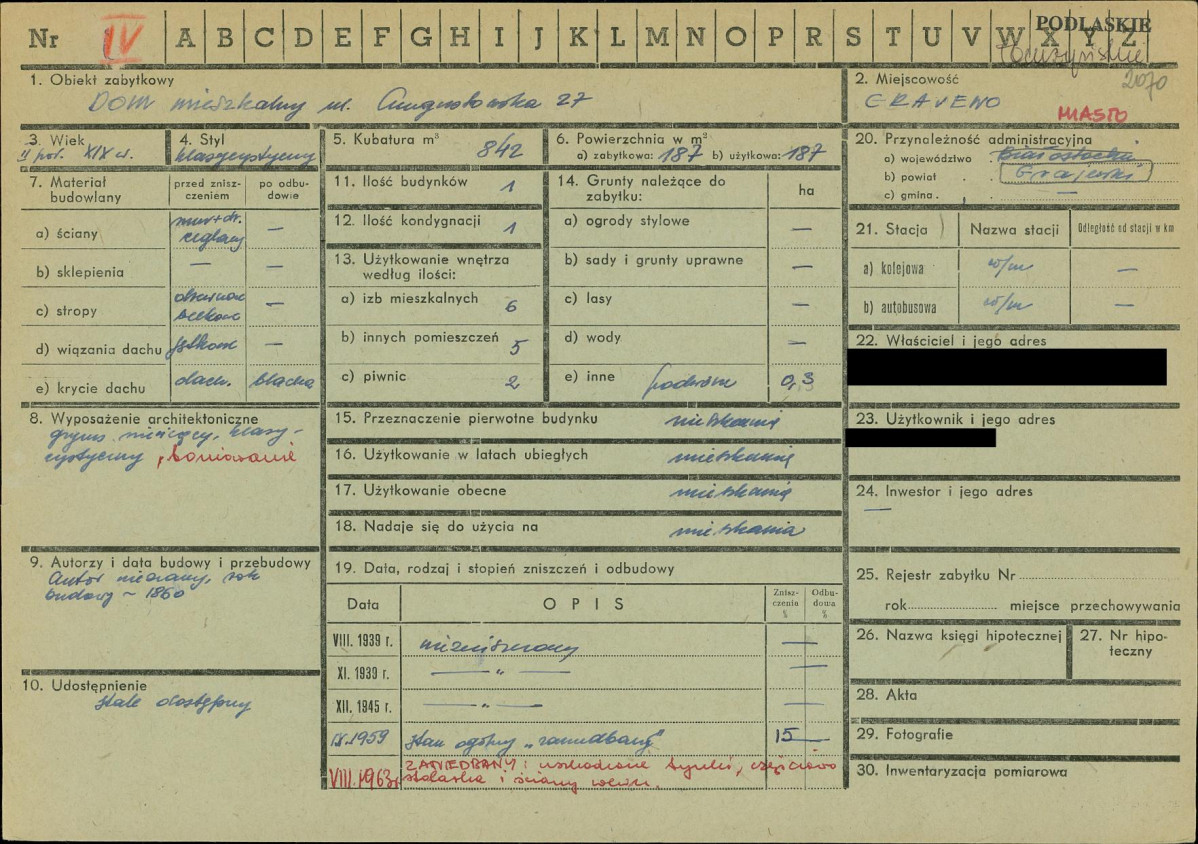 Nr IV A B C D E F G H I J K L M N O P R S T U V W X Y Z
PODLASKIE
Łomżyńskie
2070
1. Obiekt zabytkowy
DOM mieszkalny ul. Augustowska 27
2. Miejscowość
GRAJEWO
MIASTO
3. Wiek
II poł. XIX w.
4. Styl
klasycystyczny
5. Kubatura m³ 842
6. Powierzchnia w m²
a) zabytkowa: 187 b) użytkowa: 187
7. Materiał budowlany
przed zniszczeniem
po odbudowie
a) ściany
mur + dr.
ceglany
—
b) sklepienia — —
c) stropy
drewniane
belkowe
—
d) wiązania dachu —
e) krycie dachu dach. blacha
8. Wyposażenie architektoniczne
gzyms wieńczący, klasy-
cystyczny, boniowanie
9. Autorzy i data budowy i przebudowy
Autor nieznany, rok
budowy ~ 1860
10. Udostępnienie
stale dostępny
11. Ilość budynków 1
12. Ilość kondygnacji 1
13. Użytkowanie wnętrza
według ilości:
a) izb mieszkalnych 6
b) innych pomieszczeń 5
c) piwnic 2
14. Grunty należące do
zabytku:
ha
a) ogrody stylowe —
b) sady i grunty uprawne —
c) lasy —
d) wody —
e) inne podwórze 0,3
15. Przeznaczenie pierwotne budynku mieszkanie
16. Użytkowanie w latach ubiegłych mieszkanie
17. Użytkowanie obecne mieszkanie
18. Nadaje się do użycia na mieszkania
19. Data, rodzaj i stopień zniszczeń i odbudowy
Data OPIS
Znisz-
czenia
%
Odbu-
dowa
%
VIII. 1939 r. niezniszczony —
XI. 1939 r. — " — —
XII. 1945 r. — " —
IX.1959 stan ogólny „zaniedbany" 15 —
VIII.1963r ZANIEDBANY: uszkodzone tynki, częściowo
stolarka i ściany wewn.
20. Przynależność administracyjna
a) województwo Białostockie
b) powiat Grajewski
c) gmina —
21. Stacja Nazwa stacji Odległość od stacji w km
a) kolejowa w/m —
b) autobusowa w/m —
22. Właściciel i jego adres
23. Użytkownik i jego adres
24. Inwestor i jego adres
—
25. Rejestr zabytku Nr
rok miejsce przechowywania
26. Nazwa księgi hipotecznej
27. Nr hipo-
teczny
28. Akta
29. Fotografie
30. Inwentaryzacja pomiarowa